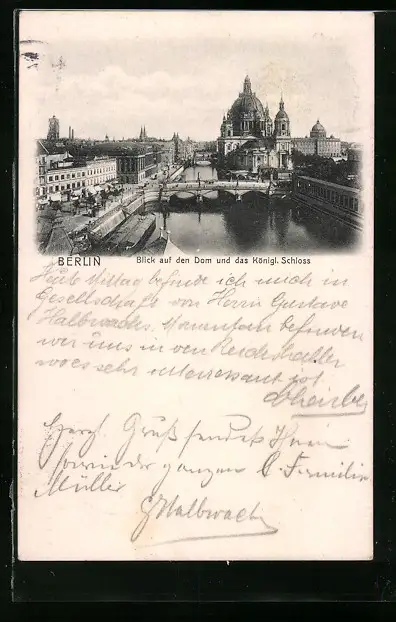 BERLIN
Blick auf den Dom und das Königl. Schloss
Heute Mittag befinde ich mich in
Gesellschaft von Herrn Gustave
Halbwachs. Momentan befinden
wir uns in den Reichshallen
wo es sehr interessant ist.
Herzl. Gruß sendet Ihnen
sowie der ganzen l. Familie
Müller
G Halbwachs